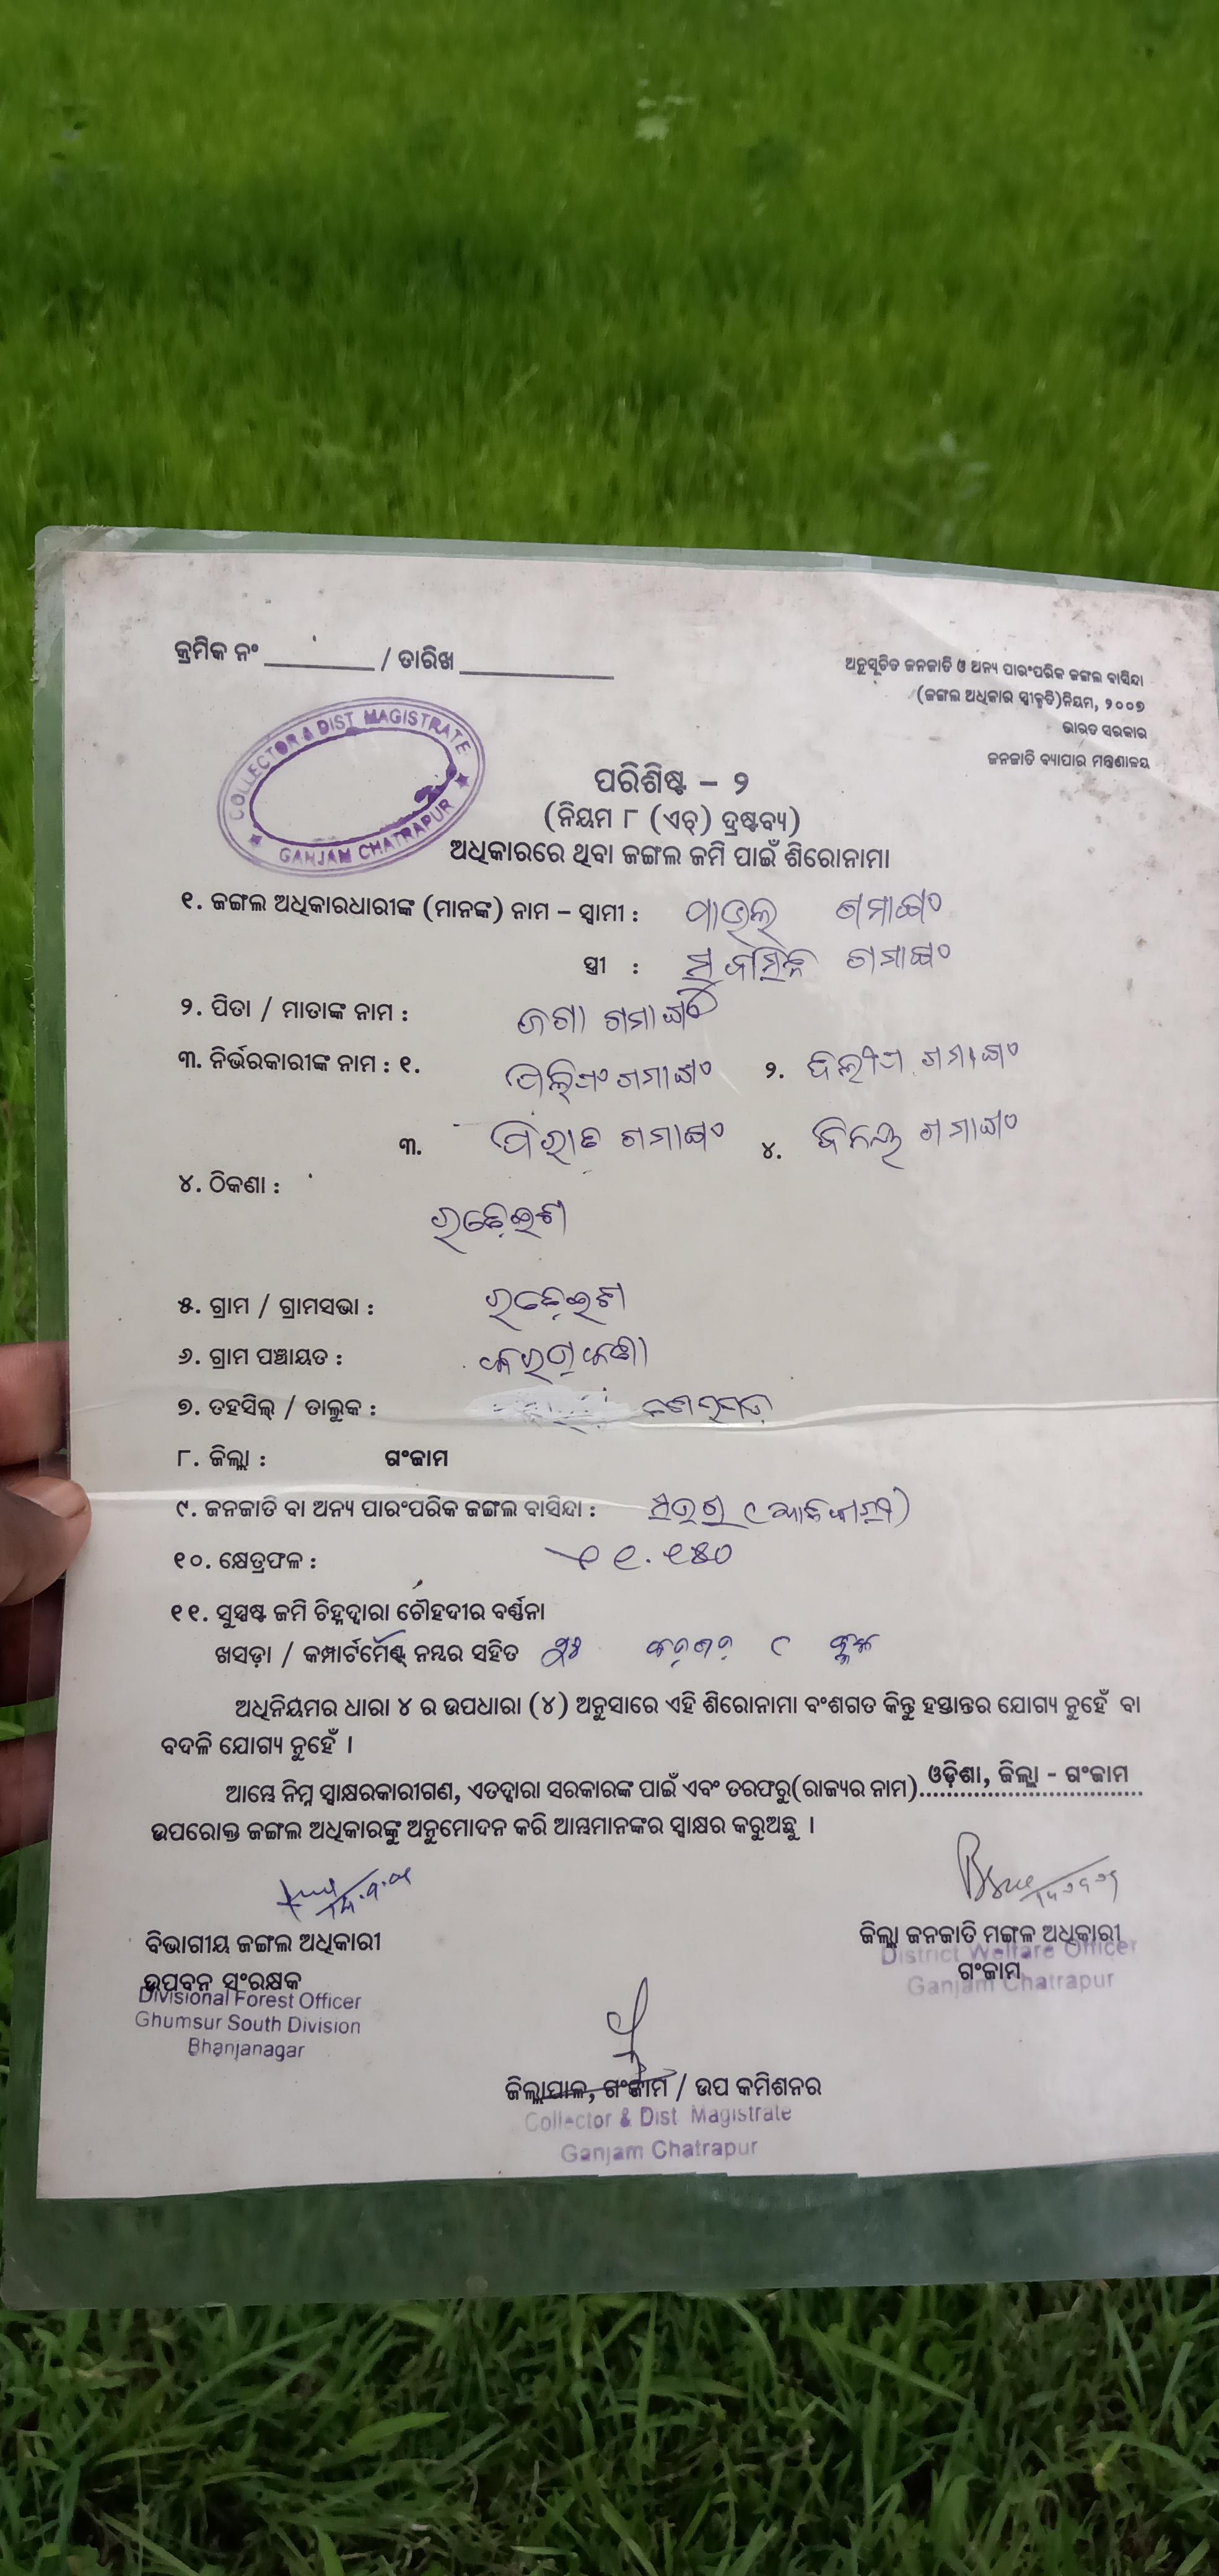 କ୍ରମିକ ନଂ / ତାରିଖ
ଅନୁସୂଚିତ ଜନଜାତି ଓ ଅନ୍ୟ ପାରଂପରିକ ଜଙ୍ଗଲ ବାସିନ୍ଦା
(ଜଙ୍ଗଲ ଅଧିକାର ସ୍ୱୀକୃତି)ନିୟମ, ୨୦୦୭
ଭାରତ ସରକାର
ଜନଜାତି ବ୍ୟାପାର ମନ୍ତ୍ରଣାଳୟ
COLLECTOR & DIST MAGISTRATE
GANJAM CHATRAPUR
ପରିଶିଷ୍ଟ – ୨
(ନିୟମ ୮ (ଏଚ୍) ଦ୍ରଷ୍ଟବ୍ୟ)
ଅଧିକାରରେ ଥିବା ଜଙ୍ଗଲ ଜମି ପାଇଁ ଶିରୋନାମା
୧. ଜଙ୍ଗଲ ଅଧିକାରଧାରୀଙ୍କ (ମାନଙ୍କ) ନାମ – ସ୍ୱାମୀ : ଗମାଙ୍ଗ
ସ୍ତ୍ରୀ : ଗମାଙ୍ଗ
୨. ପିତା / ମାତାଙ୍କ ନାମ : ଗମାଙ୍ଗ
୩. ନିର୍ଭରକାରୀଙ୍କ ନାମ : ୧. ଗମାଙ୍ଗ ୨. ଗମାଙ୍ଗ
୩. ଗମାଙ୍ଗ ୪. ଗମାଙ୍ଗ
୪. ଠିକଣା :
୫. ଗ୍ରାମ / ଗ୍ରାମସଭା :
୬. ଗ୍ରାମ ପଞ୍ଚାୟତ :
୭. ତହସିଲ୍ / ତାଲୁକ :
୮. ଜିଲ୍ଲା : ଗଂଜାମ
୯. ଜନଜାତି ବା ଅନ୍ୟ ପାରଂପରିକ ଜଙ୍ଗଲ ବାସିନ୍ଦା :
୧୦. କ୍ଷେତ୍ରଫଳ :
୧୧. ସୁସ୍ପଷ୍ଟ ଜମି ଚିହ୍ନଦ୍ୱାରା ଚୌହଦୀର ବର୍ଣ୍ଣନା
ଖସଡ଼ା / କମ୍ପାର୍ଟମେଣ୍ଟ୍ ନମ୍ବର ସହିତ
ଅଧିନିୟମର ଧାରା ୪ ର ଉପଧାରା (୪) ଅନୁସାରେ ଏହି ଶିରୋନାମା ବଂଶଗତ କିନ୍ତୁ ହସ୍ତାନ୍ତର ଯୋଗ୍ୟ ନୁହେଁ ବା
ବଦଳି ଯୋଗ୍ୟ ନୁହେଁ ।
ଆମ୍ଭେ ନିମ୍ନ ସ୍ୱାକ୍ଷରକାରୀଗଣ, ଏତଦ୍ୱାରା ସରକାରଙ୍କ ପାଇଁ ଏବଂ ତରଫରୁ(ରାଜ୍ୟର ନାମ) ଓଡ଼ିଶା, ଜିଲ୍ଲା - ଗଂଜାମ
ଉପରୋକ୍ତ ଜଙ୍ଗଲ ଅଧିକାରଙ୍କୁ ଅନୁମୋଦନ କରି ଆମ୍ଭମାନଙ୍କର ସ୍ୱାକ୍ଷର କରୁଅଛୁ ।
ବିଭାଗୀୟ ଜଙ୍ଗଲ ଅଧିକାରୀ
ଉପବନ ସଂରକ୍ଷକ
Divisional Forest Officer
Ghumsur South Division
Bhanjanagar
ଜିଲ୍ଲା ଜନଜାତି ମଙ୍ଗଳ ଅଧିକାରୀ
District Welfare Officer
ଗଂଜାମ
Ganjam Chatrapur
ଜିଲ୍ଲାପାଳ, ଗଂଜାମ / ଉପ କମିଶନର
Collector & Dist Magistrate
Ganjam Chatrapur